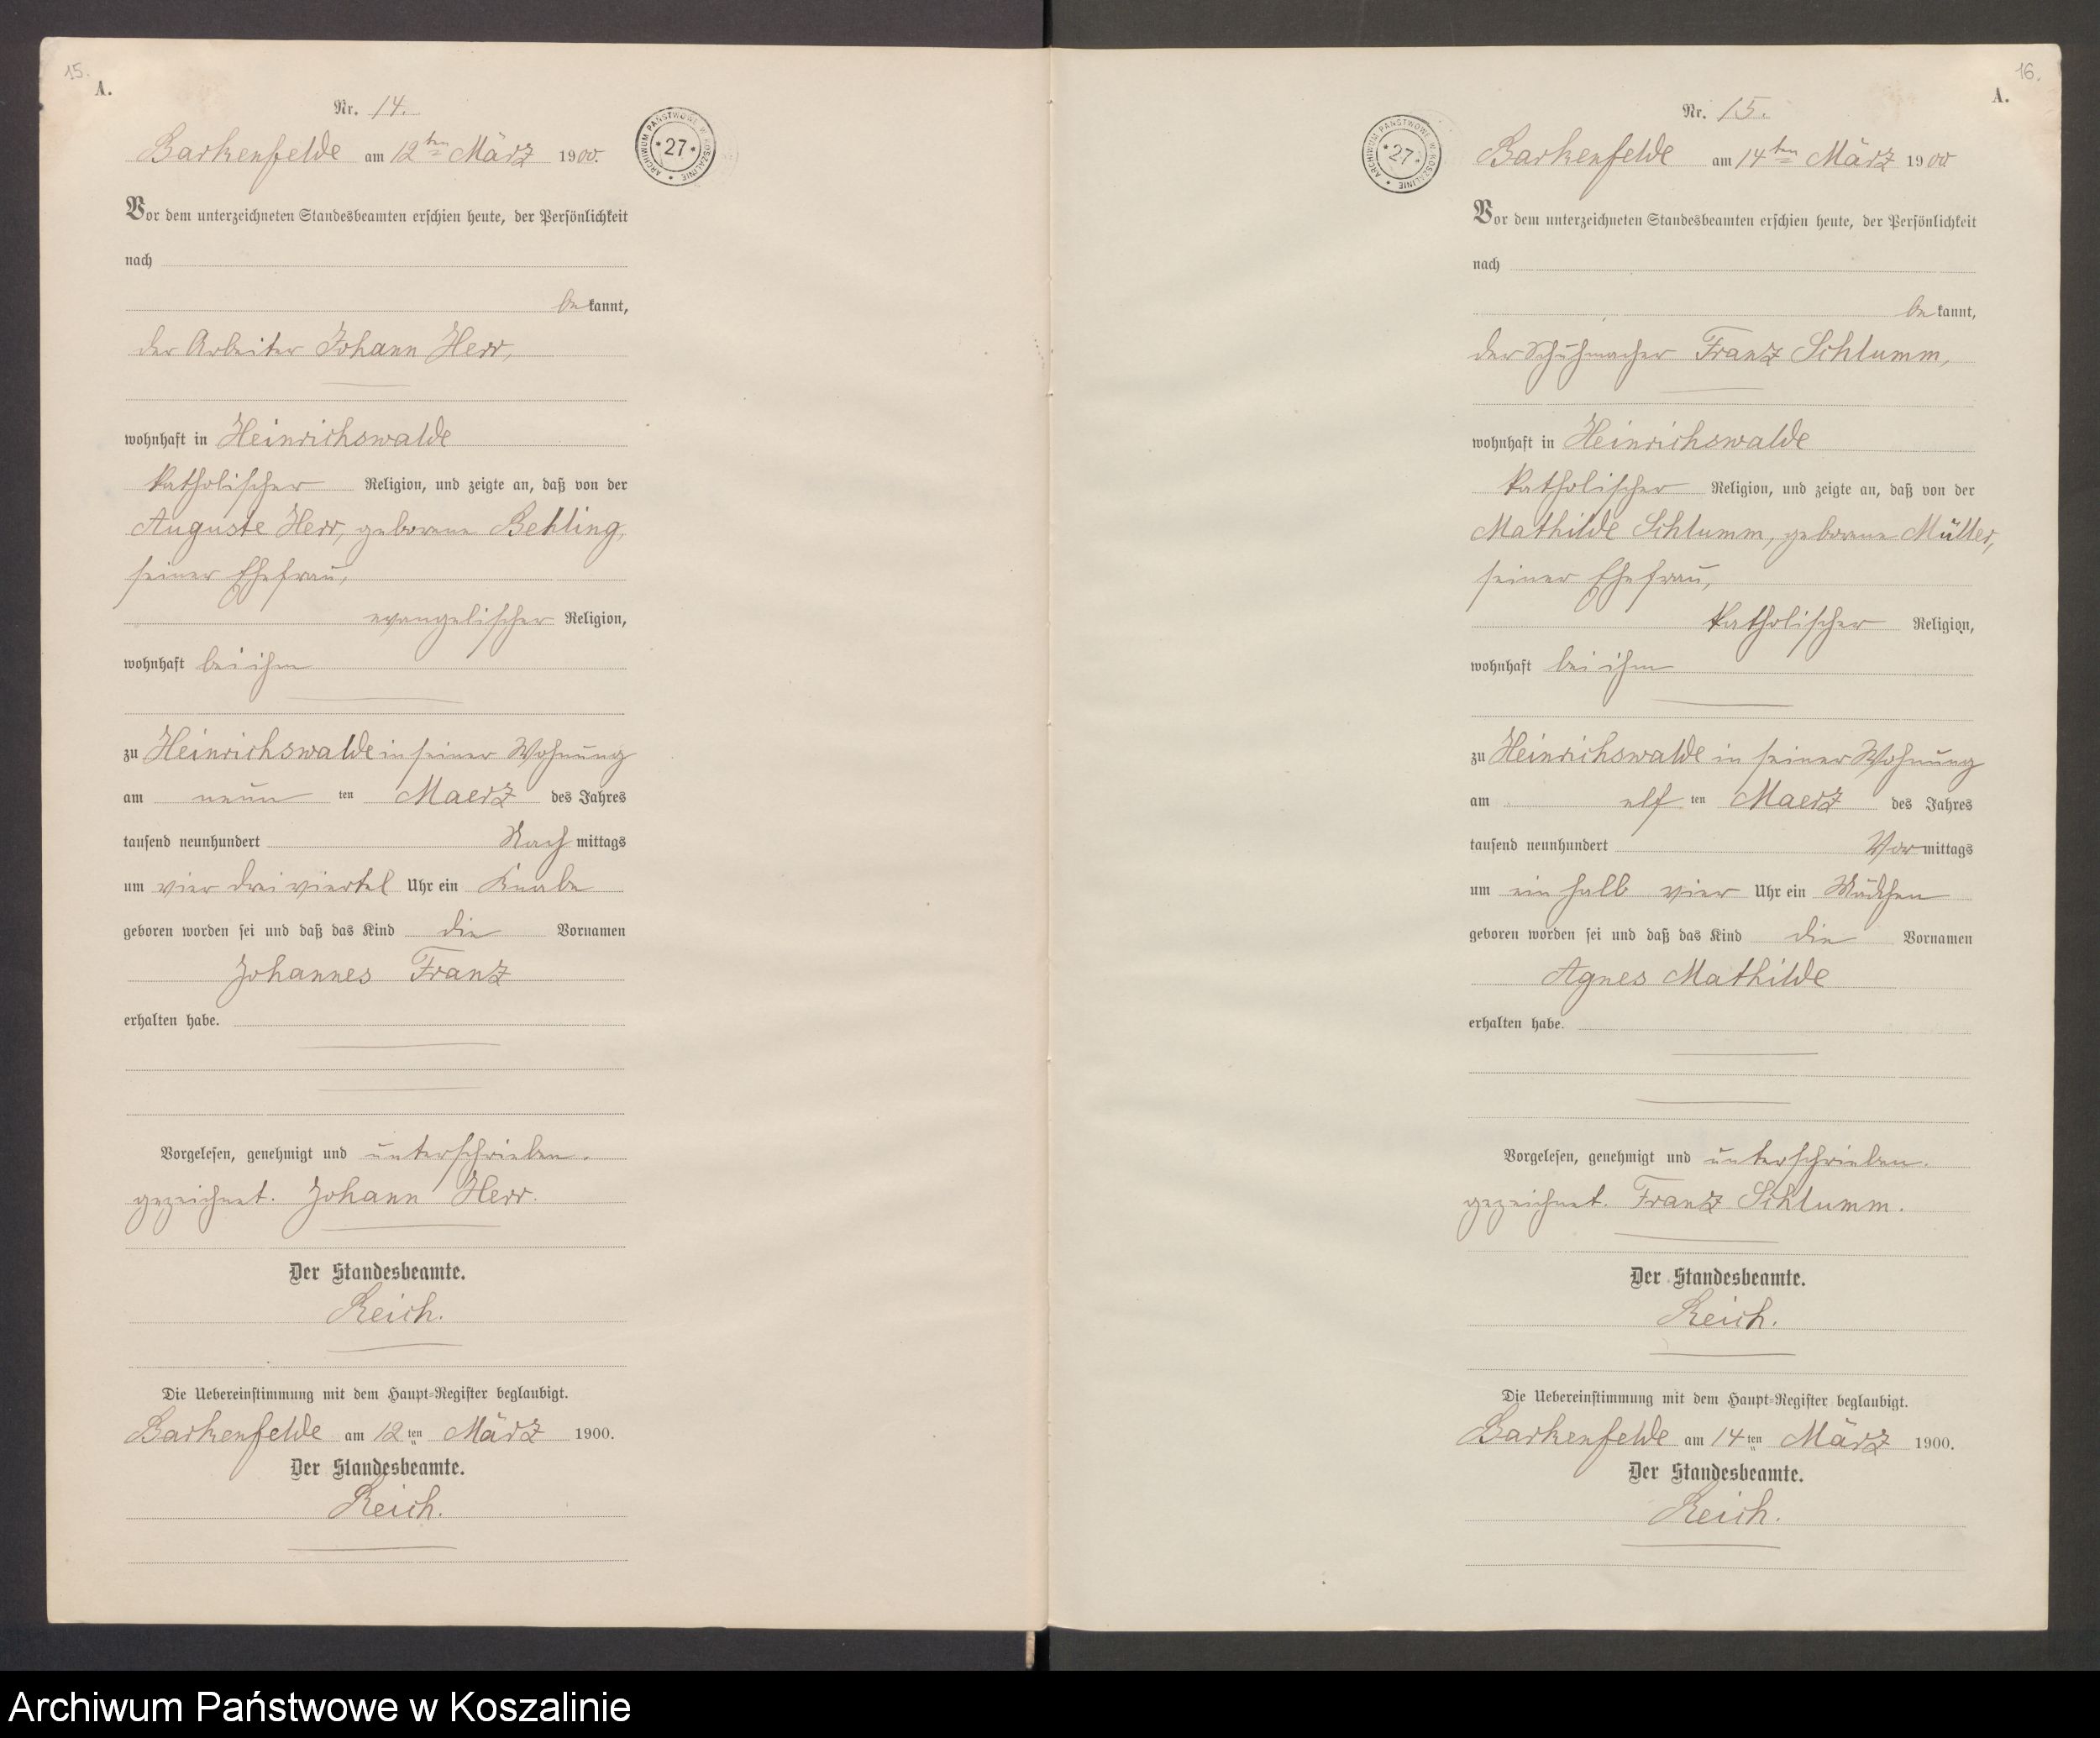 15.
A.
Nr. 14.
Barkenfelde am 12ten März 1900.
ARCHIWUM PAŃSTWOWE W KOSZALINIE
* 27 *
Vor dem unterzeichneten Standesbeamten erschien heute, der Persönlichkeit
nach
bekannt,
der Arbeiter Johann Herr,
wohnhaft in Heinrichswalde
katholischer Religion, und zeigte an, daß von der
Auguste Herr, geborene Behling,
seiner Ehefrau,
evangelischer Religion,
wohnhaft bei ihm
zu Heinrichswalde in seiner Wohnung
am neun ten Maerz des Jahres
tausend neunhundert Nach mittags
um vier dreiviertel Uhr ein Knabe
geboren worden sei und daß das Kind die Vornamen
Johannes Franz
erhalten habe.
Vorgelesen, genehmigt und unterschrieben.
gezeichnet. Johann Herr.
Der Standesbeamte.
Reich.
Die Uebereinstimmung mit dem Haupt-Register beglaubigt.
Barkenfelde am 12 ten März 1900.
Der Standesbeamte.
Reich.
16.
A.
Nr. 15.
Barkenfelde am 14ten März 1900
ARCHIWUM PAŃSTWOWE W KOSZALINIE
* 27 *
Vor dem unterzeichneten Standesbeamten erschien heute, der Persönlichkeit
nach
bekannt,
der Schuhmacher Franz Schlumm,
wohnhaft in Heinrichswalde
katholischer Religion, und zeigte an, daß von der
Mathilde Schlumm, geborene Müller,
seiner Ehefrau,
katholischer Religion,
wohnhaft bei ihm
zu Heinrichswalde in seiner Wohnung
am elf ten Maerz des Jahres
tausend neunhundert Vormittags
um ein halb vier Uhr ein Mädchen
geboren worden sei und daß das Kind die Vornamen
Agnes Mathilde
erhalten habe.
Vorgelesen, genehmigt und unterschrieben.
gezeichnet. Franz Schlumm.
Der Standesbeamte.
Reich.
Die Uebereinstimmung mit dem Haupt-Register beglaubigt.
Barkenfelde am 14 ten März 1900.
Der Standesbeamte.
Reich.
Archiwum Państwowe w Koszalinie